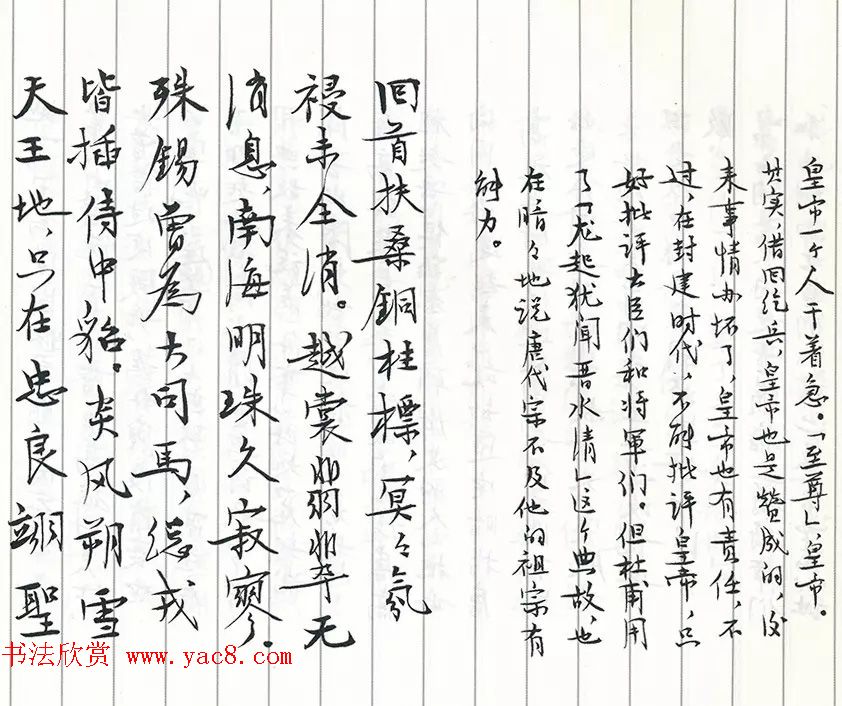 皇帝一个人干着急。「至尊」,皇帝。
其实,借回纥兵,皇帝也是赞成的,后
来事情办坏了,皇帝也有责任,不
过,在封建时代,不能批评皇帝,只
好批评大臣们和将军们。但杜甫用
了「龙起犹闻晋水清」这个典故,也
在暗々地说唐代宗不及他的祖宗有
能力。
回首扶桑銅柱標,冥々氛
祲未全消。越裳翡翠无
消息,南海明珠久寂寥。
殊錫曾為大司馬,總戎
皆插侍中貂。炎风朔雪
天王地,只在忠良翊聖
书法欣赏 www.yac8.com